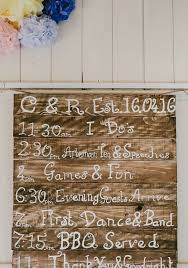 C & R. Est. 16.04.16
11:30am I Do's
2:30pm Afternoon Tea & Speeches
4pm Games & Fun
6:30pm Evening Guests Arrive
7pm First Dance & Band
7:15pm BBQ Served
11pm Thank You & Goodnight